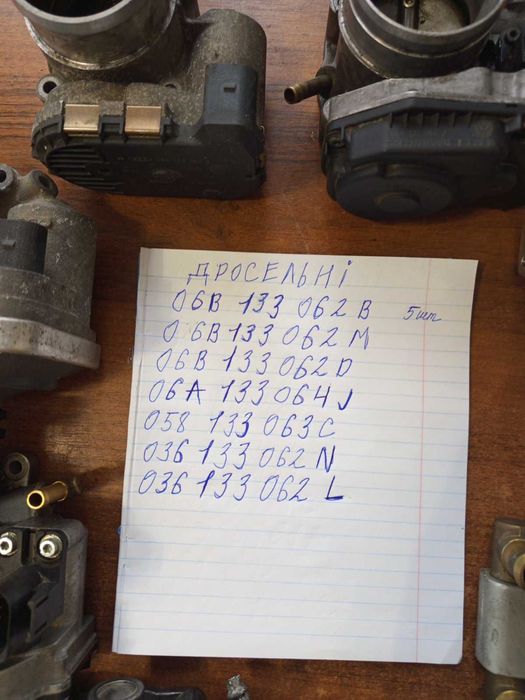 ДРОСЕЛЬНІ
06B 133 062 B 5шт
06B 133 062 M
06B 133 062 D
06A 133 064 J
058 133 063 C
036 133 062 N
036 133 062 L